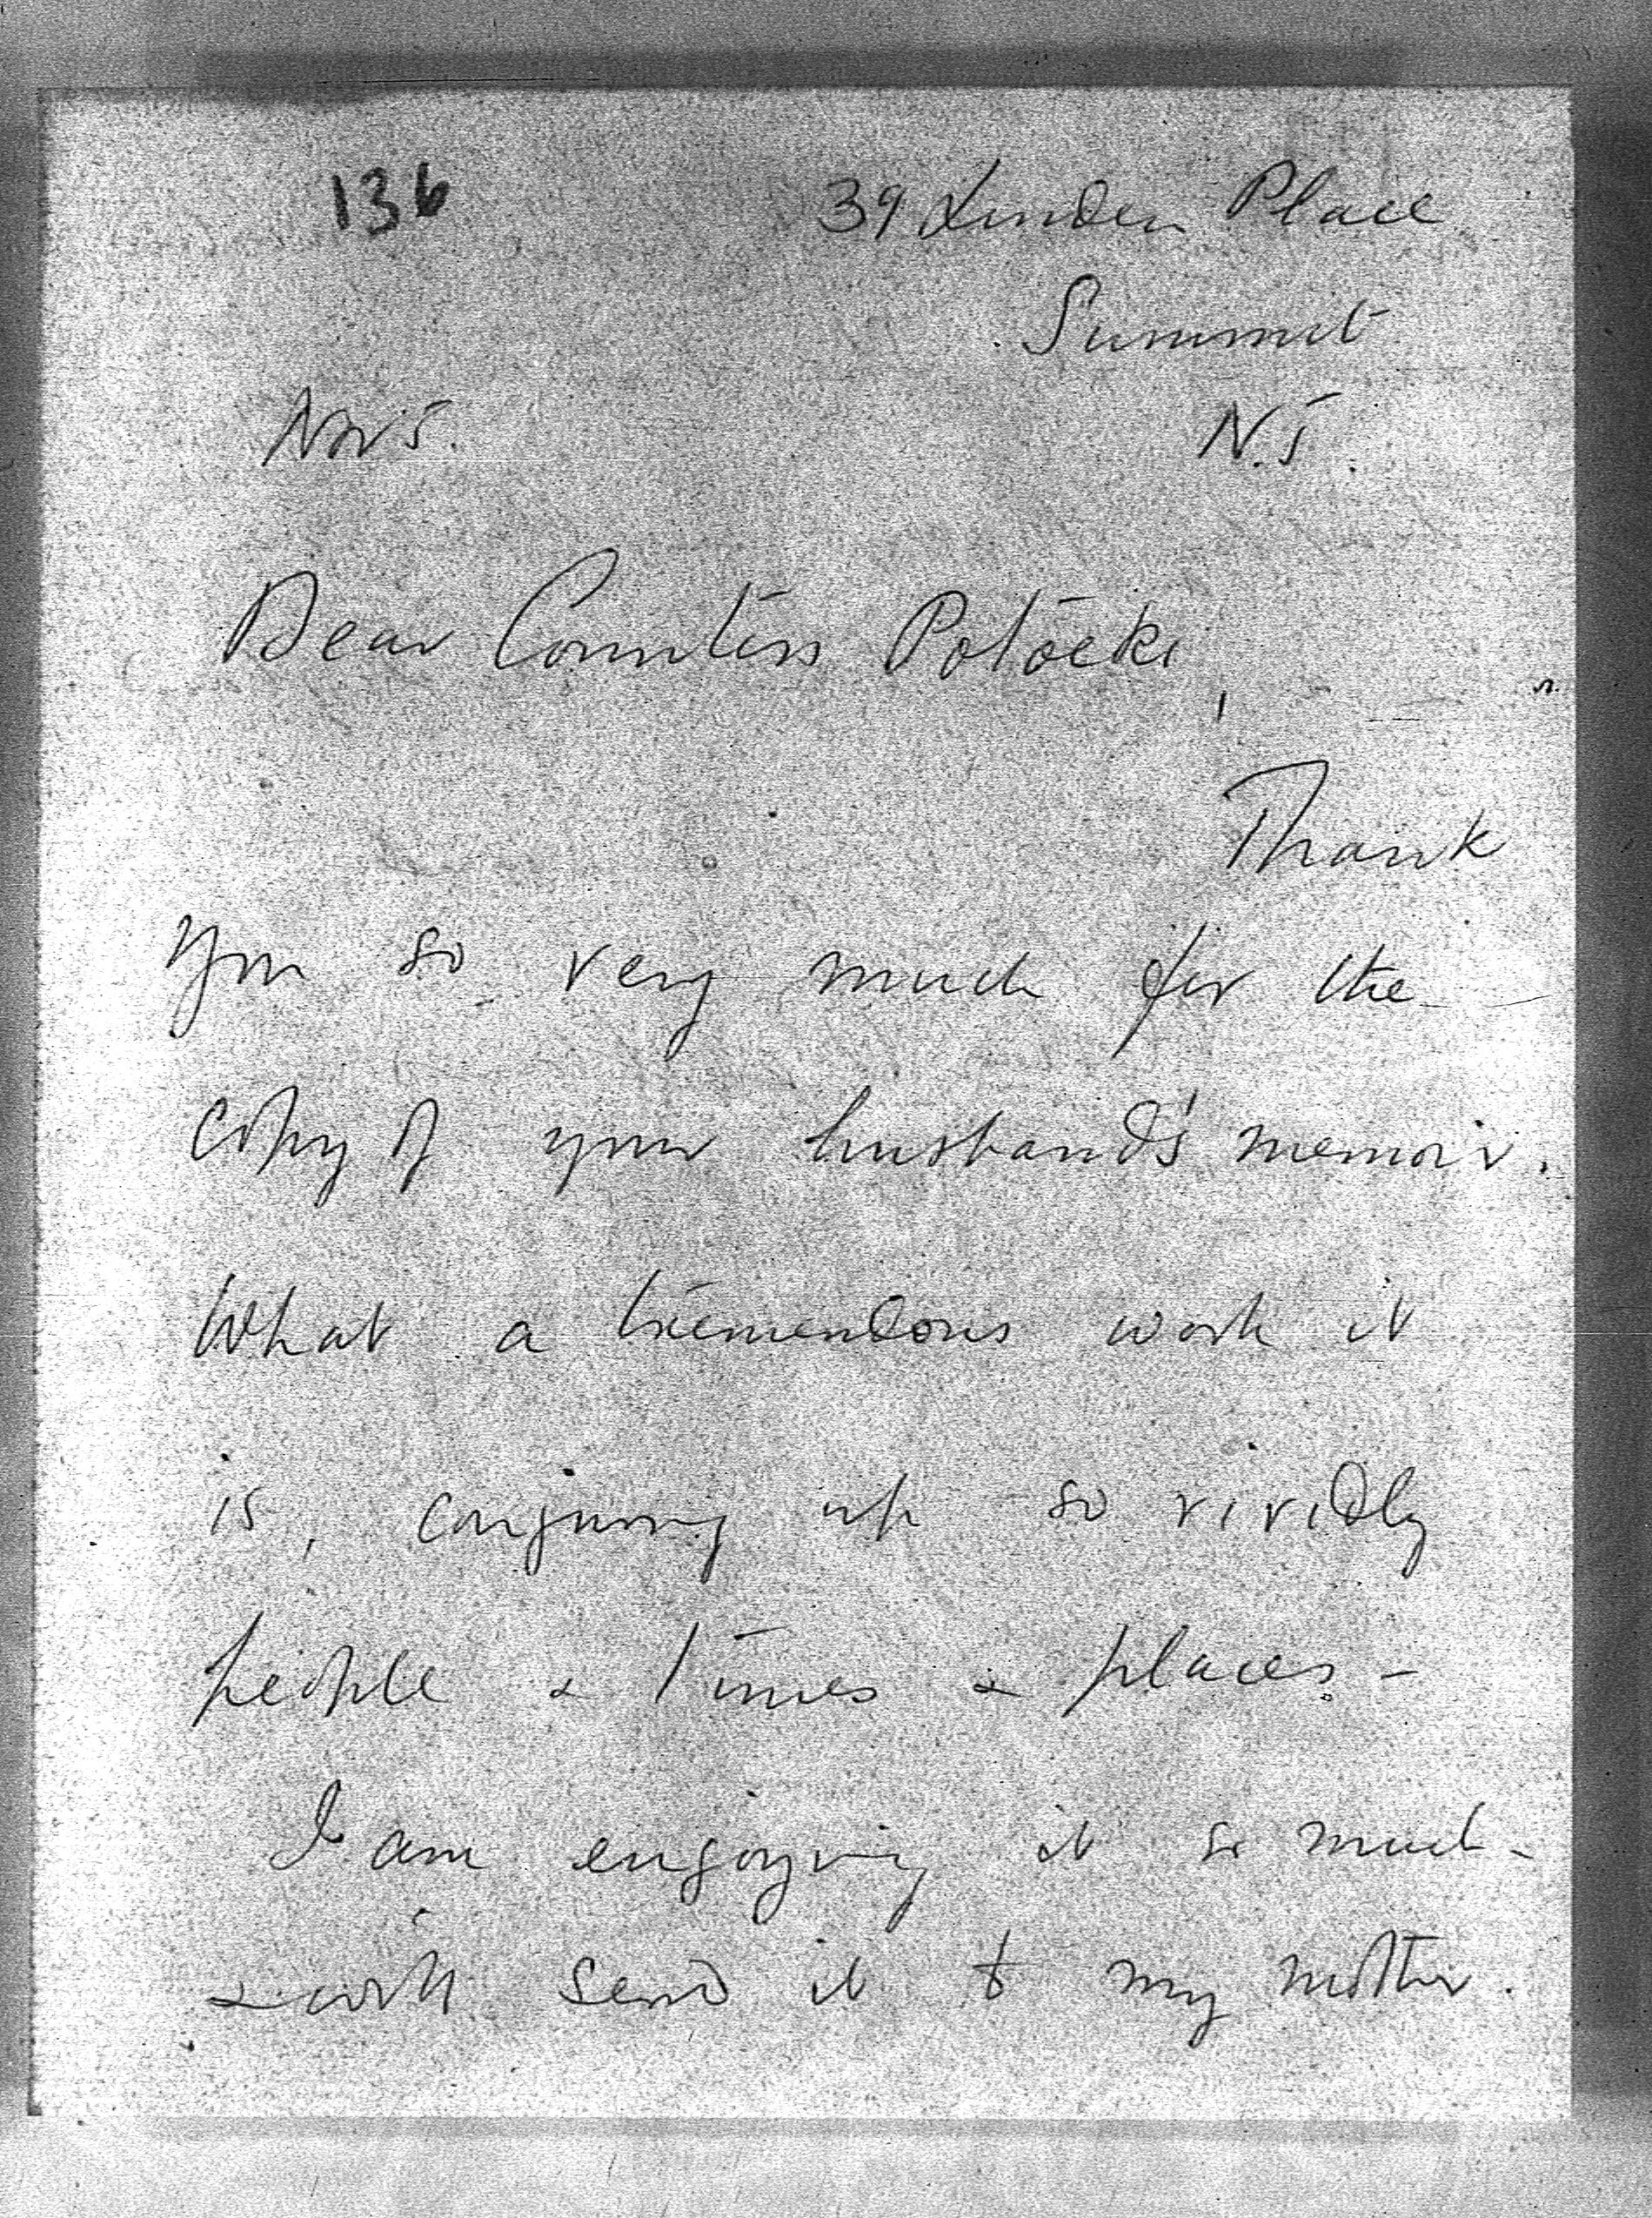 136
39 Linden Place
Summit
Nov 5. N.J.
Dear Countess Potocki,
Thank
you so very much for the
copy of your husband's memoir.
What a tremendous work it
is, conjuring up so vividly
people & times & places -
I am enjoying it so much -
& will send it to my mother.